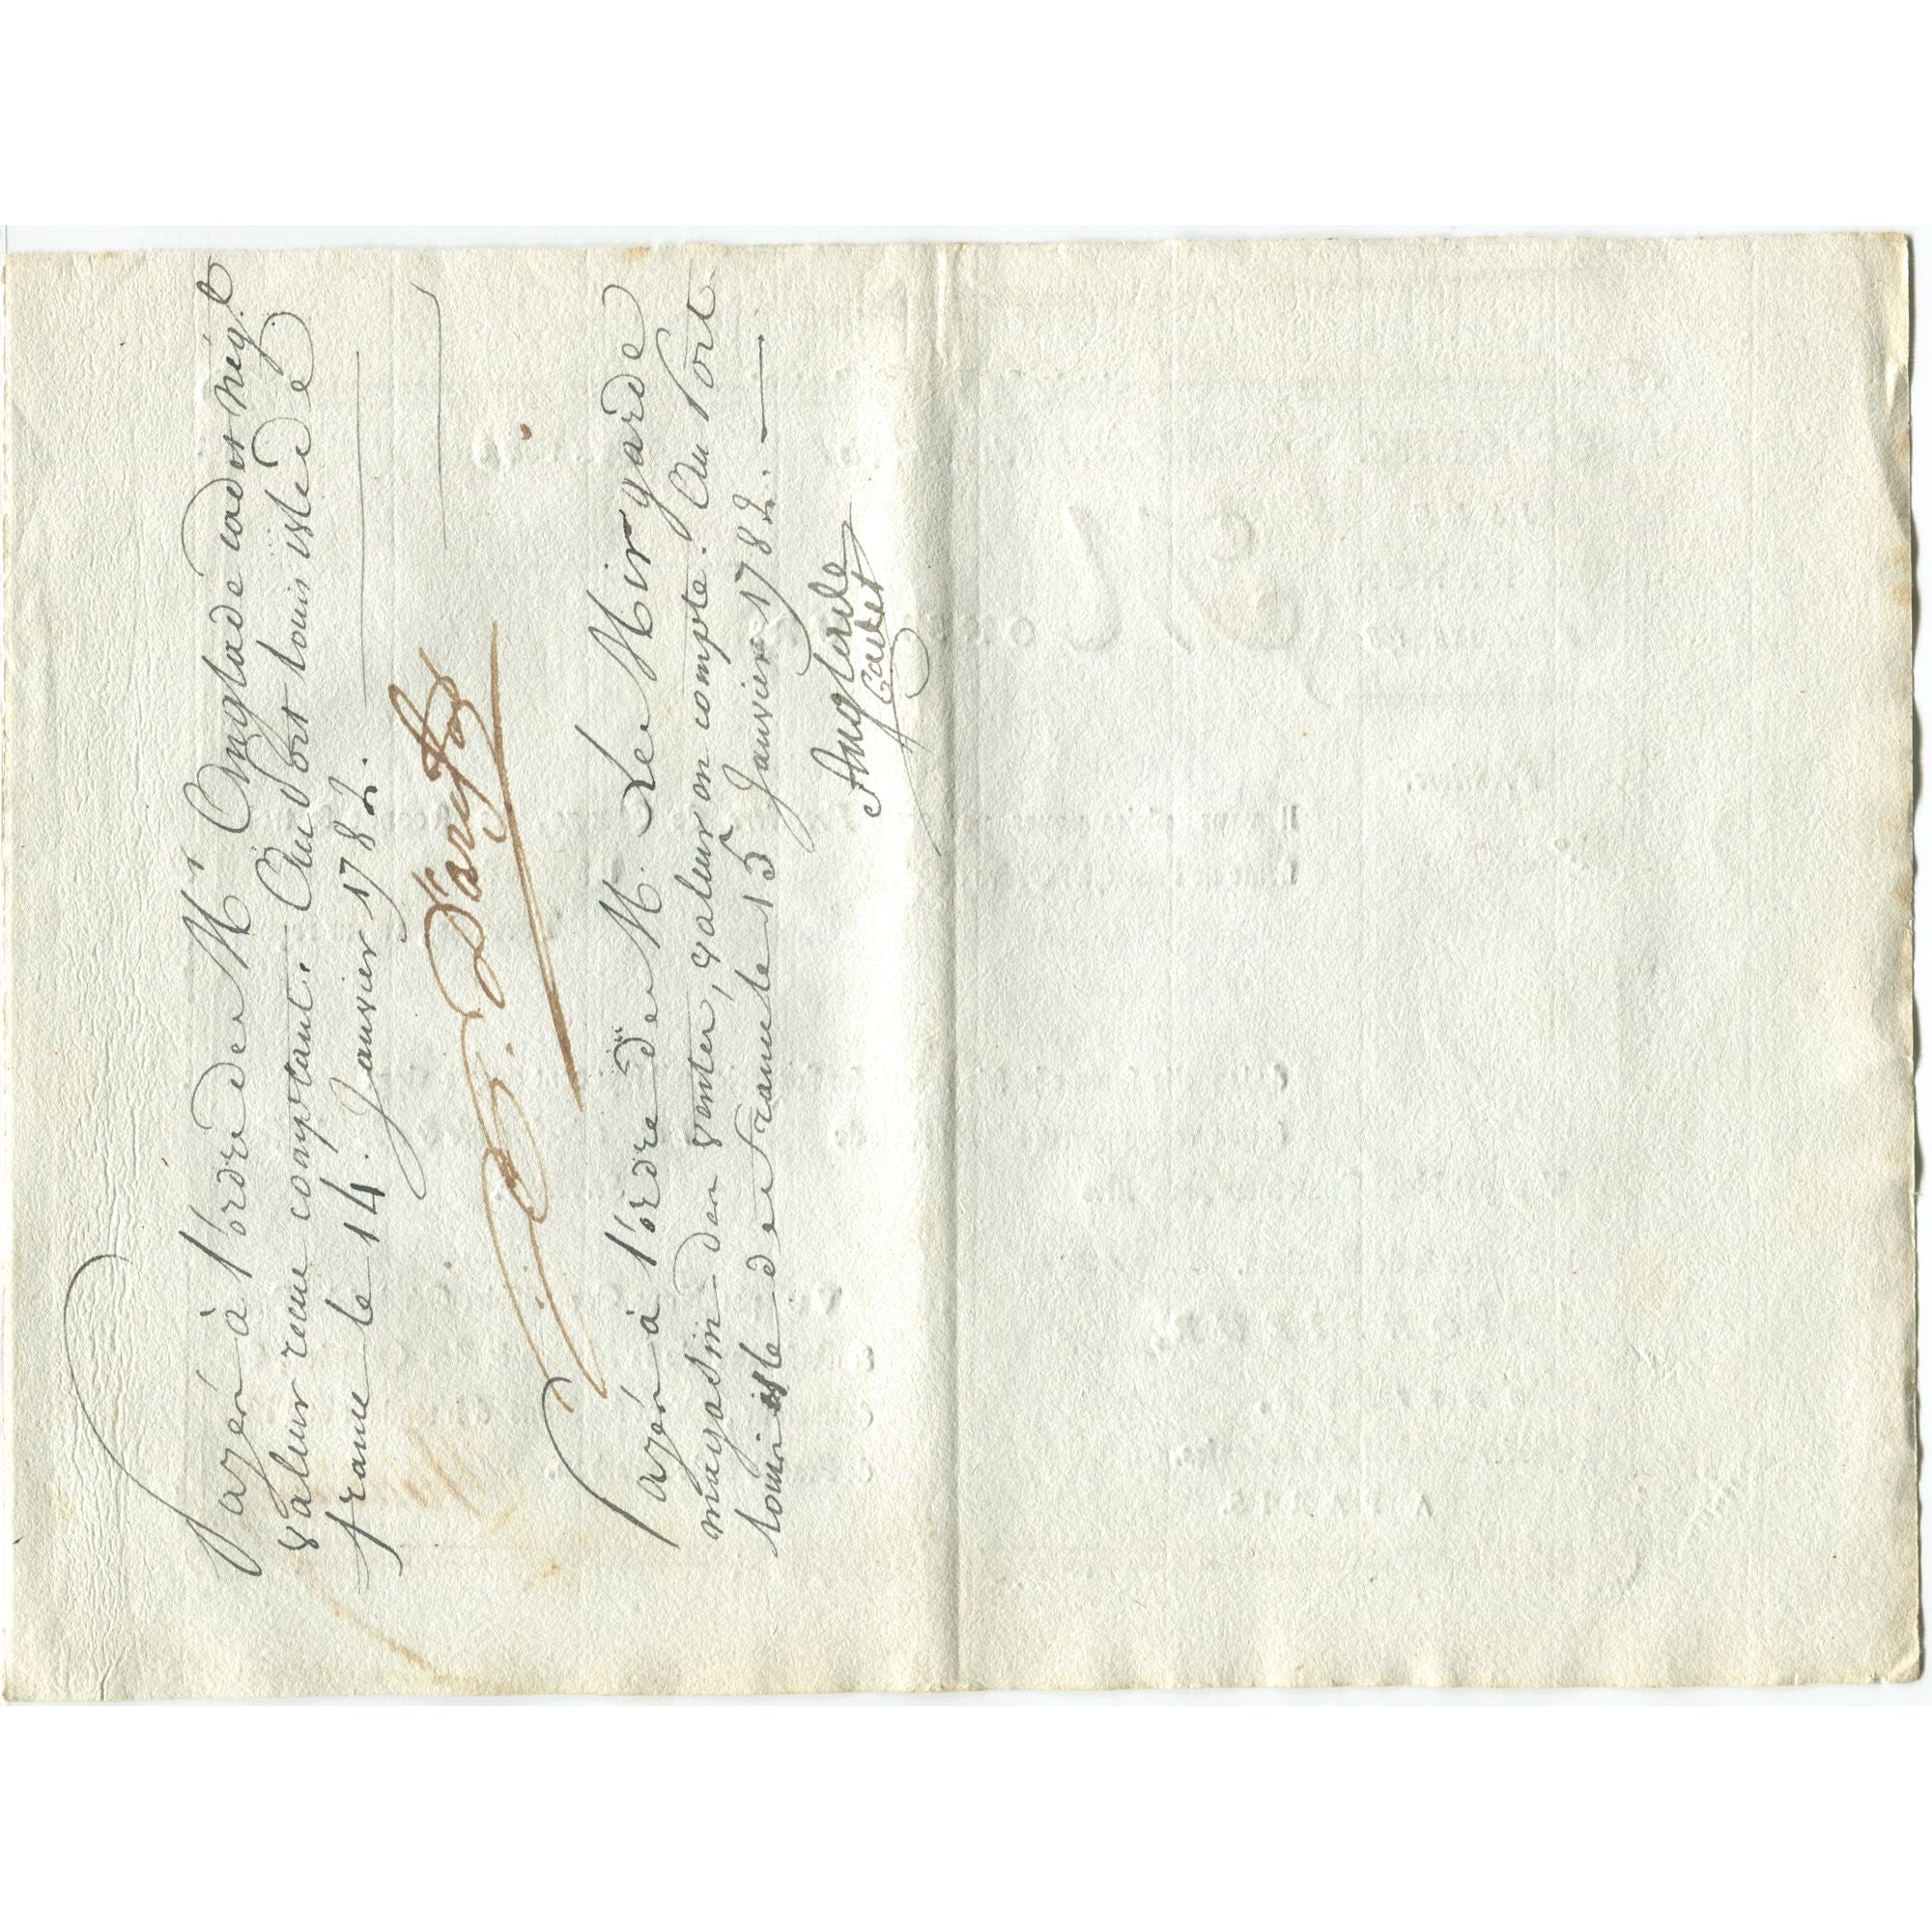 Payez à l'ordre de Mr Anglade cadet négt
valeur reçue comptant. Au Port Louis isle de
france le 14. Janvier 1782.
Payez à l'ordre de M. Le Mir garde
magasin des ventes, valeur en compte. Au Port
Louis isle de France le 15 Janvier 1782.
Anglade
Cadet